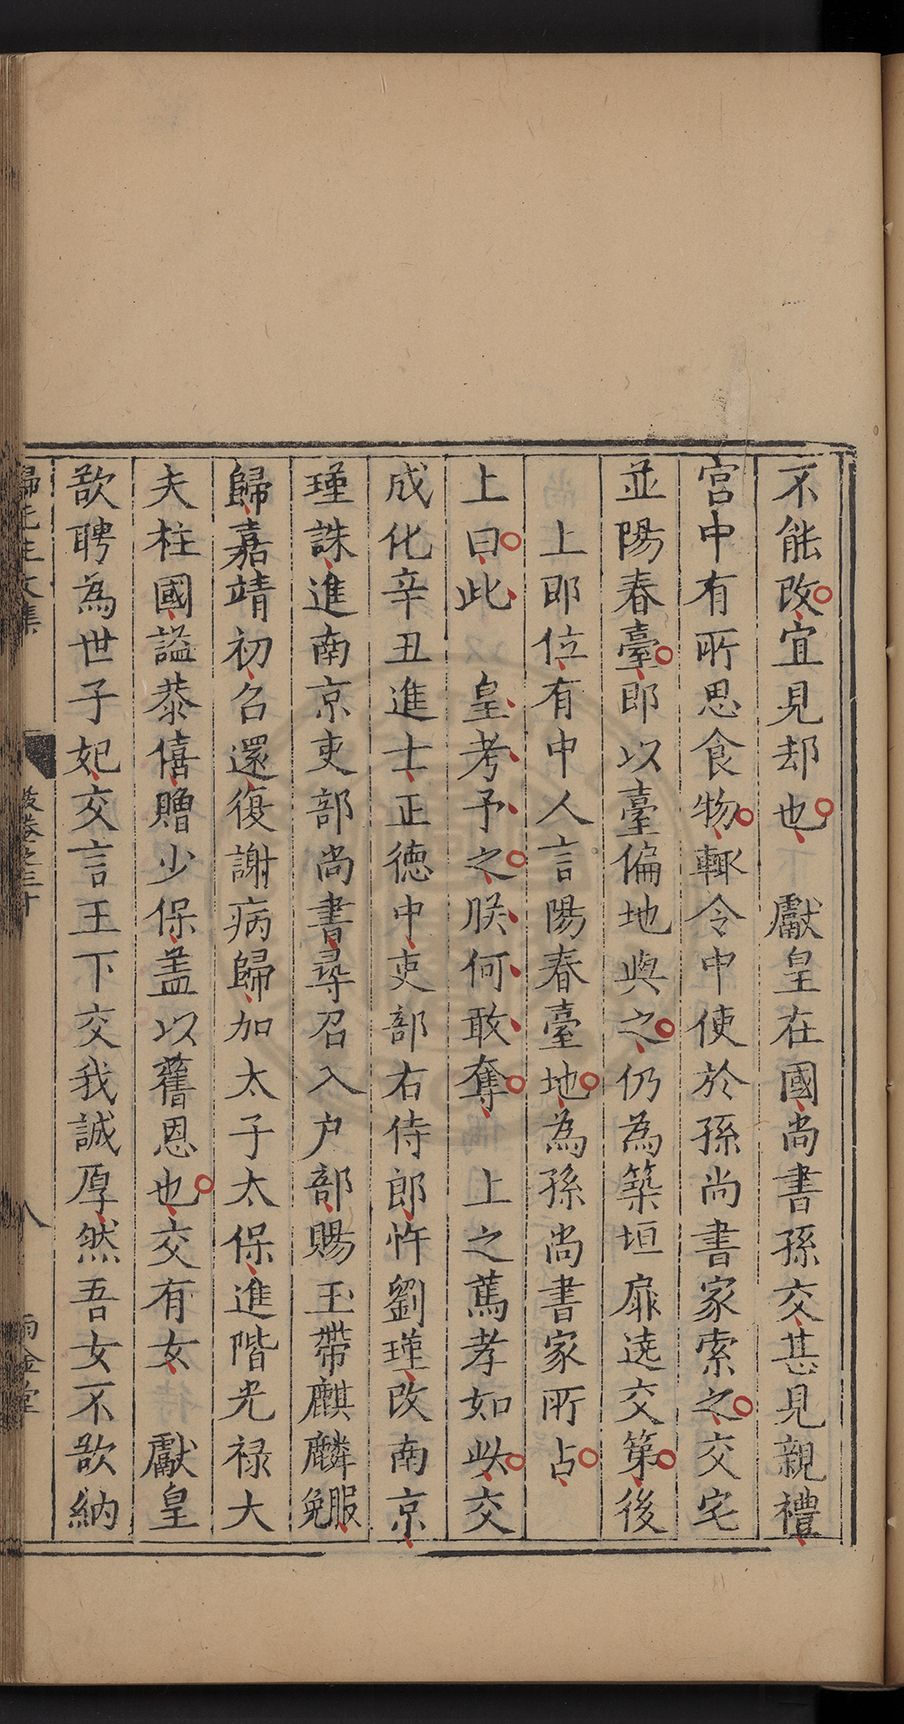 不能改宜見却也　獻皇在國尚書孫交甚見親禮
宮中有所思食物輒令中使於孫尚書家索之交宅
並陽春臺郎以臺偏地與之仍為築垣扉遶交第後
　上即位有中人言陽春臺地為孫尚書家所占
上曰此　皇考予之朕何敢奪　上之篤孝如此交
成化辛丑進士正德中吏部右侍郎忤劉瑾改南京
瑾誅進南京吏部尚書尋召入户部賜玉帶麒麟服免
歸嘉靖初召還復謝病歸加太子太保進階光禄大
夫柱國謚恭僖贈少保蓋以舊恩也交有女　獻皇
欲聘為世子妃交言王下交我誠厚然吾女不欲納
卷之三十　八